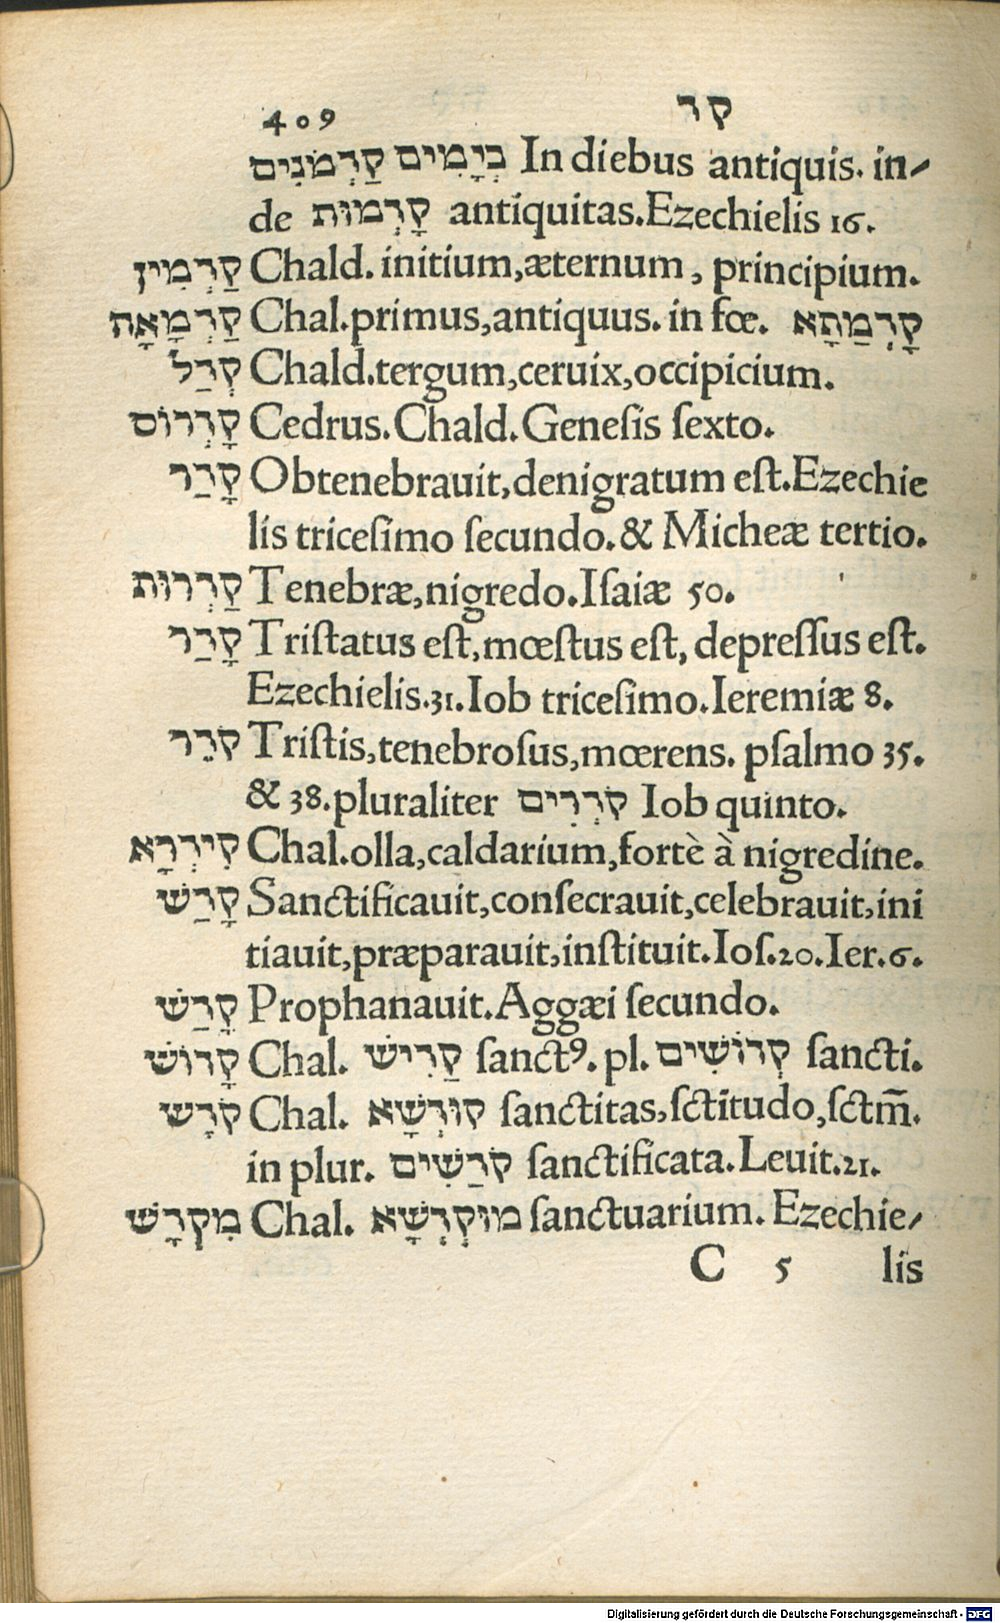 409 קד
בְּיָמִים קַדְמֹנִים In diebus antiquis. in-
de קָדְמוּת antiquitas. Ezechielis 16.
קַדְמִין Chald. initium, æternum, principium.
קַדְמָאָה Chal. primus, antiquus. in fœ. קָדְמַתָא
קְדַל Chald. tergum, ceruix, occipicium.
קָדְרוֹס Cedrus. Chald. Geneſis ſexto.
קָדַר Obtenebrauit, denigratum eſt. Ezechie
lis triceſimo ſecundo. & Micheæ tertio.
קַדְרוּת Tenebræ, nigredo. Iſaiæ 50.
קָדַר Triſtatus eſt, mœſtus eſt, depreſſus eſt.
Ezechielis. 31. Iob triceſimo. Ieremiæ 8.
קֹדֵר Triſtis, tenebroſus, mœrens. pſalmo 35.
& 38. pluraliter קֹדְרִים Iob quinto.
קִידְרָא Chal. olla, caldarium, fortè à nigredine.
קָדַשׁ Sanctificauit, conſecrauit, celebrauit, ini
tiauit, præparauit, inſtituit. Ioſ. 20. Ier. 6.
קָדַשׁ Prophanauit. Aggæi ſecundo.
קָדוֹשׁ Chal. קַדִישׁ ſanctꝰ. pl. קְדוֹשִׁים ſancti.
קֹדֶשׁ Chal. קוּדְשָׁא ſanctitas, ſctitudo, ſctm̄.
in plur. קֹדַשִׁים ſanctificata. Leuit. 21.
מִקְדָּשׁ Chal. מוּקְדְשָׁא ſanctuarium. Ezechie-
C 5 lis
Digitalisierung gefördert durch die Deutsche Forschungsgemeinschaft - DFG